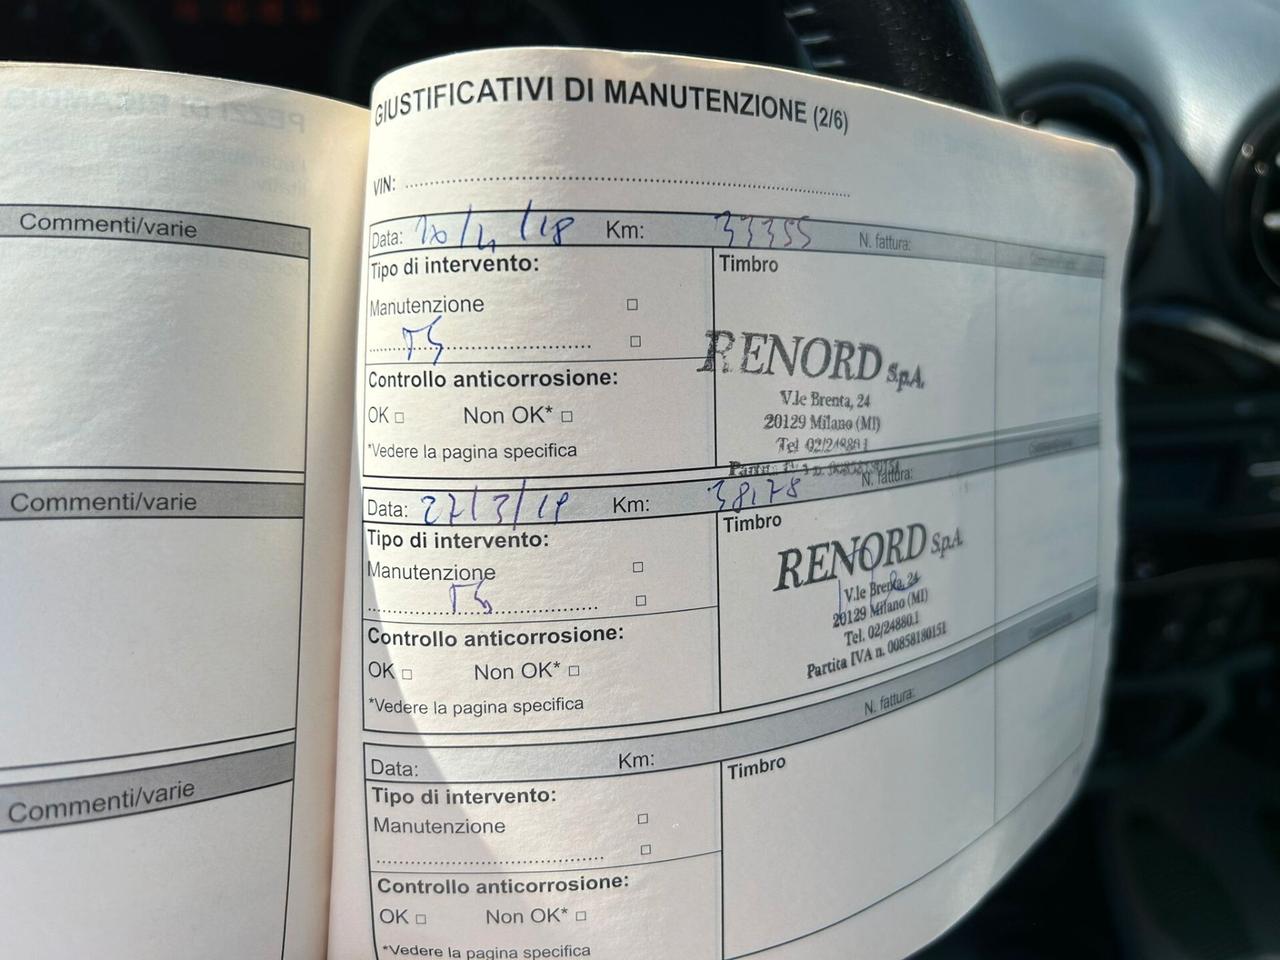 Commenti/varie
Commenti/varie
Commenti/varie
GIUSTIFICATIVI DI MANUTENZIONE (2/6)
VIN:
Data: 20/4/18 Km: 33355 N. fattura:
Tipo di intervento: Timbro
Manutenzione
RENORD S.p.A.
V.le Brenta, 24
20129 Milano (MI)
Tel 02/24880.1
Partita IVA n. 00858180151
Controllo anticorrosione:
OK Non OK*
*Vedere la pagina specifica
Data: 27/3/19 Km: 38178 N. fattura:
Tipo di intervento: Timbro
Manutenzione
RENORD S.p.A.
V.le Brenta, 24
20129 Milano (MI)
Tel. 02/24880.1
Partita IVA n. 00858180151
Controllo anticorrosione:
OK Non OK*
*Vedere la pagina specifica
Data: Km: N. fattura:
Tipo di intervento: Timbro
Manutenzione
Controllo anticorrosione:
OK Non OK*
*Vedere la pagina specifica